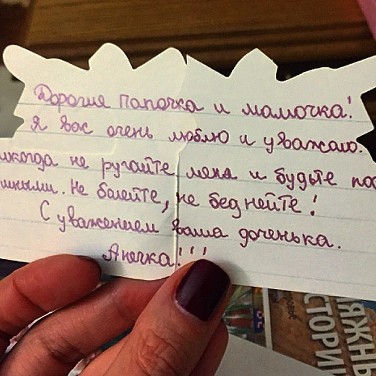 Дорогия папочка и мамочка!
Я вас очень люблю и уважаю.
икогда не ругайте меня и будьте пос
шными. Не болейте, не беднейте!
С уважением ваша доченька.
Анечка!!!
ЯЖНЫ
СТОРИ